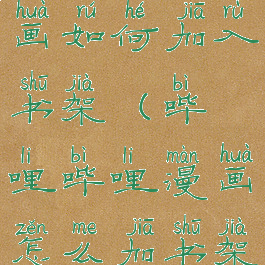 huà rú hé jiā rù
画如何加入
shū jià bì
书架（哔
li bì li màn huà
哩哔哩漫画
zěn me jiā shū jià
怎么加书架